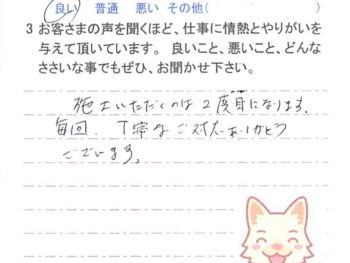 良い 普通 悪い その他(
3 お客さまの声を聞くほど、仕事に情熱とやりがいを
与えて頂いています。 良いこと、悪いこと、どんな
ささいな事でもぜひ、お聞かせ下さい。
施工いただくのは2度目になります。
毎回、丁寧なご対応ありがとう
ございます。